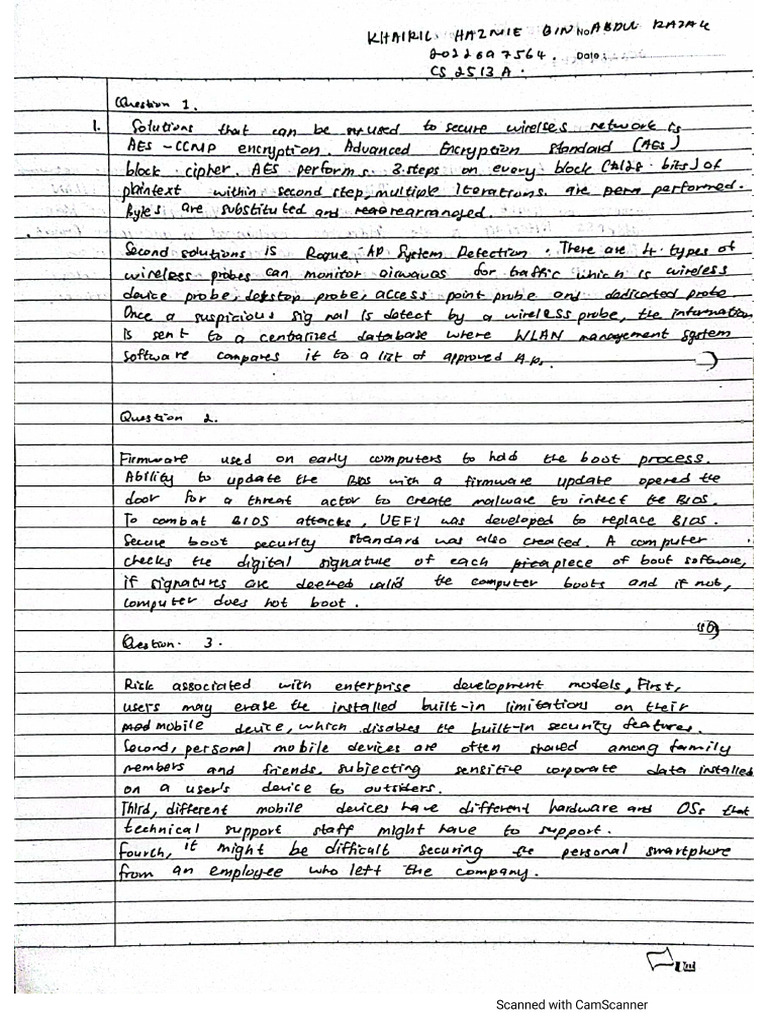 KHAIRIL HAZMIE BIN No ABDUL RAZAK
2022697564. Date:
CS 2513A.
Question 1.
1. Solutions that can be used to secure wirelses network is
AES-CCMP encryption. Advanced Encryption Standard (AES)
block cipher. AES performs 3 steps on every block (128 bits) of
plaintext within second step, multiple iterations are performed.
Bytes are substituted and rearranged.
Second solutions is Rogue AP System Detection. There are 4 types of
wireless probes can monitor airwaves for traffic which is wireless
device probe, dekstop probe, access point probe and dedicated probe.
Once a suspicious signal is detect by a wireless probe, the information
is sent to a centralized database where WLAN management system
software compares it to a list of approved Ap.
Question 2.
Firmware used on early computers to hold the boot process.
Ability to update the BIOS with a firmware update opened the
door for a threat actor to create malware to infect the BIOS.
To combat BIOS attacks, UEFI was developed to replace BIOS.
Secure boot security standard was also created. A computer
checks the digital signature of each piece of boot software,
if signatures are deemed valid the computer boots and if not,
computer does not boot.
Question 3.
Risk associated with enterprise development models, First,
users may erase the installed built-in limitations on their
mobile device, which disables the built-in security features.
Second, personal mobile devices are often shared among family
members and friends, subjecting sensitive corporate data installed
on a user's device to outsiders.
Third, different mobile devices have different hardware and OSs that
technical support staff might have to support.
Fourth, it might be difficult securing the personal smartphone
from an employee who left the company.
Uni
Scanned with CamScanner